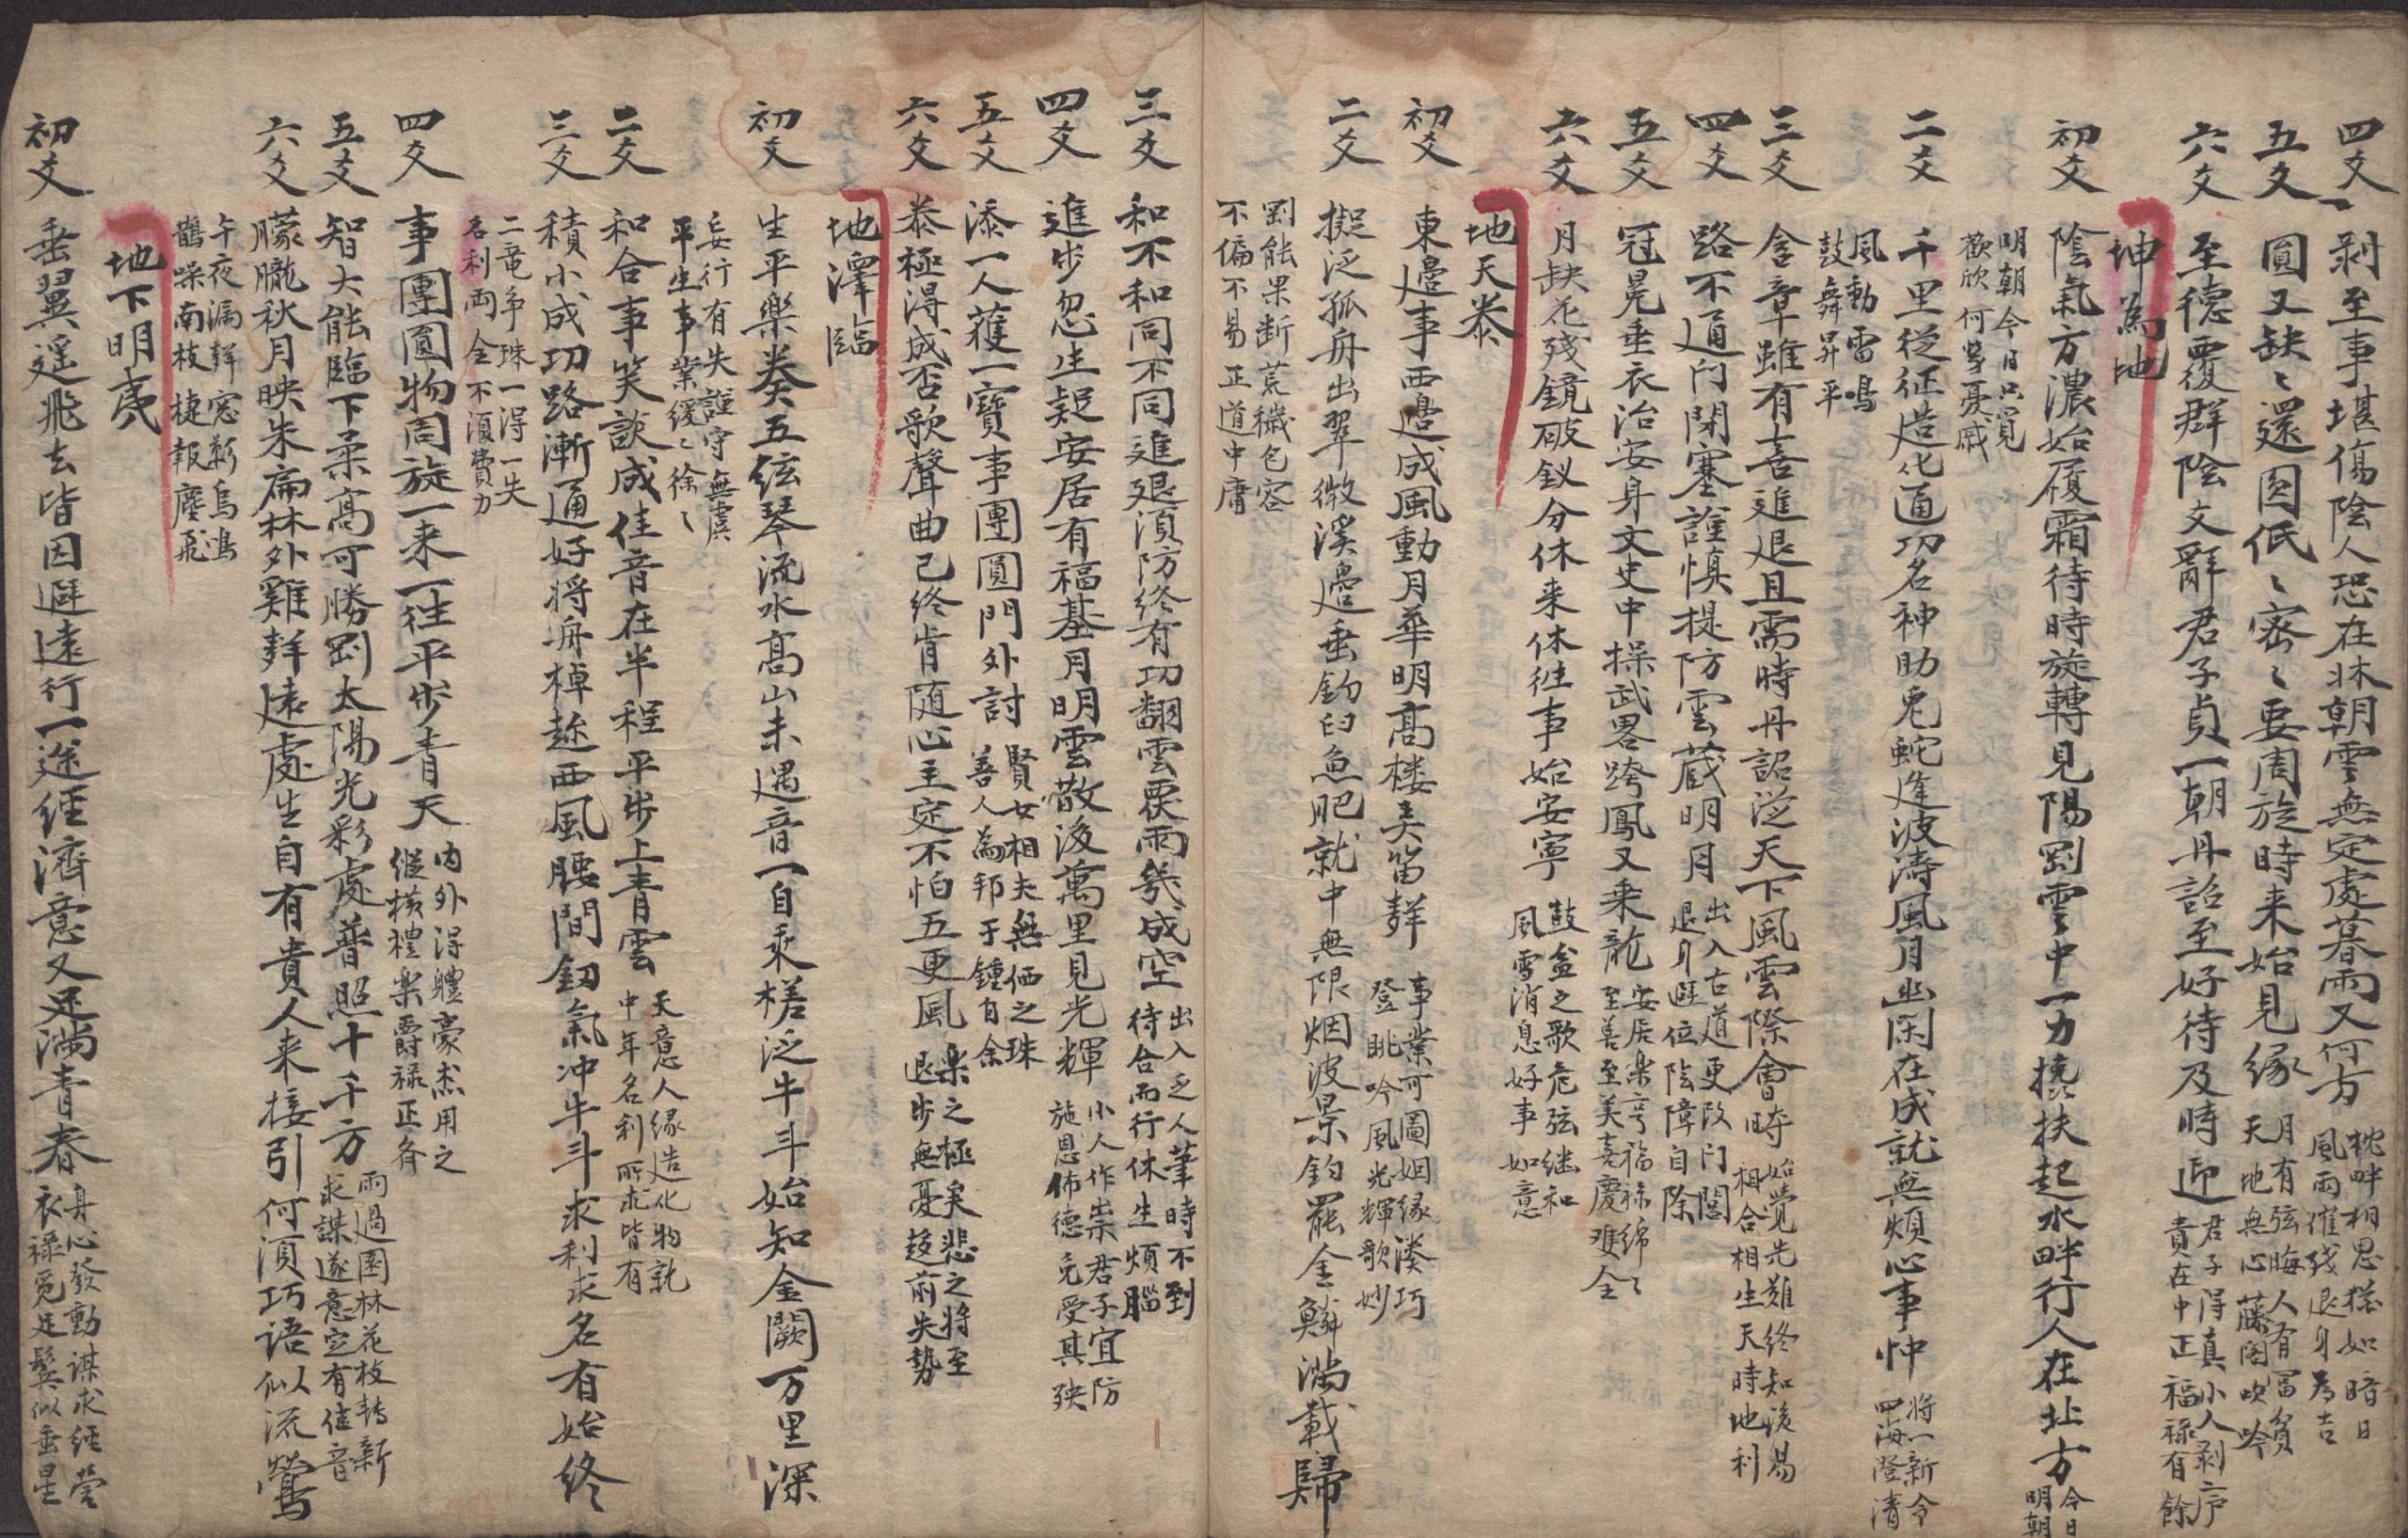 四爻 剥至事堪傷陰人恐在牀朝雲無定處暮雨又何方 枕畔相思様如暗日
風雨催残退身為吉
五爻 圓又缺〻還圓低〻密〻要周旋時来始見緣 月有弦晦人有冨貧
天地無心藤閣吹吟
六爻 至德覆群陰文辭君子貞一朝丹詔至好待及時迎 君子得真小人剥序
貴在中正福禄有餘
坤為地
初爻 陰氣方濃始履霜待時旋轉見陽剛雲中一力撓扶起水畔行人在北方 今日
明朝
明朝今日只覓
歡欣何曽憂戚
二爻 千里從征造化通功名神助兎蛇逢波濤風月幽閑在成就無煩心事忡 将一新令
四海澄清
風動雷鳴
鼓舞昇平
三爻 含章雖有喜進退且需時丹詔泛天下風雲際會時 始覺先难終知後易
相合相生天時地利
四爻 路不通门閉塞謹慎提防雲蔵明月 出入古道更改门閭
退身避位陰障自除
五爻 冠冕垂衣治安身文史中操武畧跨鳳又来龍 安居楽享福禄綿〻
至善至美喜慶难全
六爻 月缺花残鏡破釵分休来休徃事始安寧 鼓盆之歌危弦继和
風雪消息好事如意
地天泰
初爻 東邉事西邉成風動月華明髙楼美笛聲 事業可圖姻缘湊巧
登眺吟風光輝歌妙
二爻 擬泛孤舟出翠微溪邉垂釣白魚肥就中無限烟波景釣罷金鱗満載歸
剛能果断荒穢包容
不偏不易正道中庸
三爻 和不和同不同進退湏防終有功翻雲覆雨幾成空 出入乏人筆時不到
待合而行休生煩腦
四爻 進步忽生疑安居有福基月明雲散後萬里見光輝 小人作祟君子宜防
施恩佈德免受其殃
五爻 添一人蒦一寶事團圓門外討 賢女相夫無価之珠
善人為邦于鍾自余
六爻 泰極得成否歌聲曲已終肯随心主定不怕五更風 楽之極矣悲之将至
退步無憂趍前失勢
地澤臨
初爻 生平樂奏五弦琴流水髙山未遇音一自乘槎泛牛斗始知金闕万里深
妄行有失謹守無虞
平生事業緩〻徐〻
二爻 和合事笑談成佳音在半程平步上青雲 天意人缘造化物就
中年名利所求皆有
三爻 積小成功路漸通好将舟棹趂西風腰間釰氣冲牛斗求利求名有始終
二竜争珠一得一失
名利両全不湏費力
四爻 事團圓物周旋一来一往平步青天 内外得軆豪杰用之
縱横禮楽爵禄正各
五爻 智大能臨下柔髙可勝剛太陽光彩處普照十千方 雨過園林花枝轉新
求謀遂意定有佳音
六爻 朦朧秋月映朱扁林外雞聲遠處生自有貴人来接引何湏巧語似流鶯
午夜漏聲窓新烏鴻
鵲噪南枝捷報塵飛
地下明夷
初爻 垂翼遥飛去皆因避遠行一途經濟意又足満青春 身心發動謀求經營
衣禄免足鬂似垂星